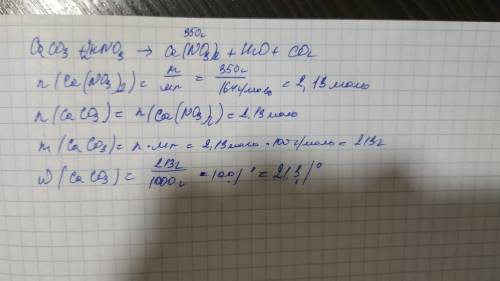 350г
CaCO3 + 2HNO3 → Ca(NO3)2 + H2O + CO2
n(Ca(NO3)2) = m/Mr = 350г/164г/моль = 2,13моль
n(CaCO3) = n(Ca(NO3)2) = 2,13моль
m(CaCO3) = n·Mr = 2,13моль·100г/моль = 213г
W(CaCO3) = 213г/1000г · 100% = 21,3%